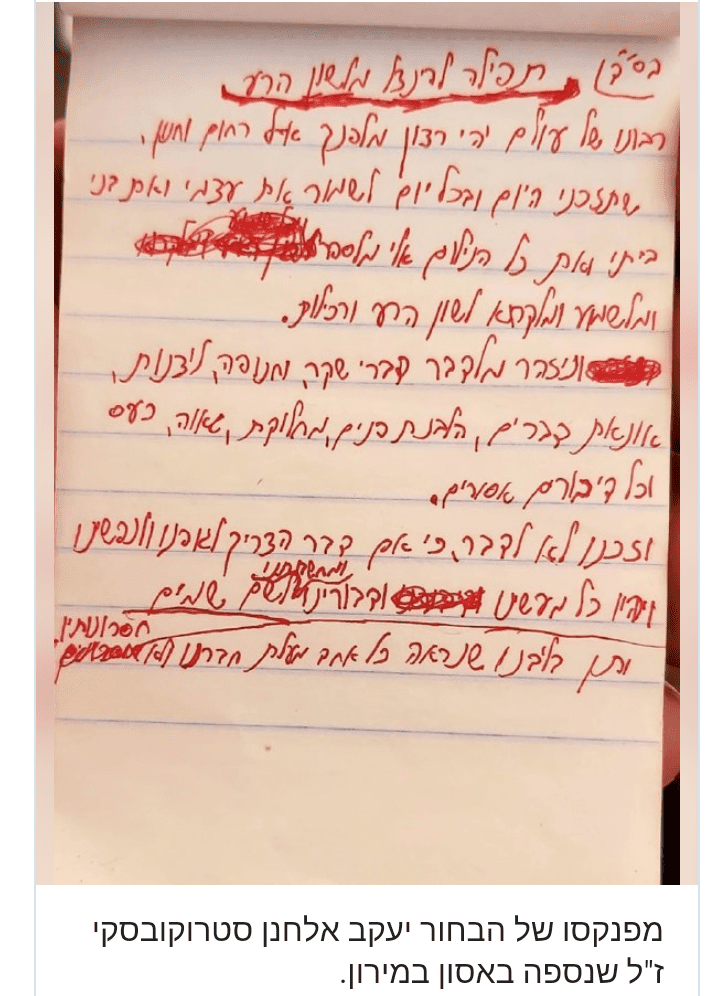 בס״ד) תפילה להינצל מלשון הרע
רבונו של עולם יהי רצון מלפניך א-ל רחום וחנון,
שתזכני היום ובכל יום לשמור את עצמי ואת בני
ביתי ואת כל הנילוים אלי מלספר
ומלשמוע ומלקבל לשון הרע ורכילות.
וניזהר מלדבר דברי שקר, חנופה, ליצנות,
אונאת דברים, הלבנת פנים, מחלוקת, גאוה, כעס
וכל דיבורים אסורים.
וזכנו לא לדבר, כי אם דבר הצריך לגופנו ולנפשינו
ומחשבותינו
ויהיו כל מעשינו ודבורינו לשם שמים
חסרונותיו
ותן בליבנו שנראה כל אחד מעלת חברנו ולא
מפנקסו של הבחור יעקב אלחנן סטרוקובסקי
ז"ל שנספה באסון במירון.